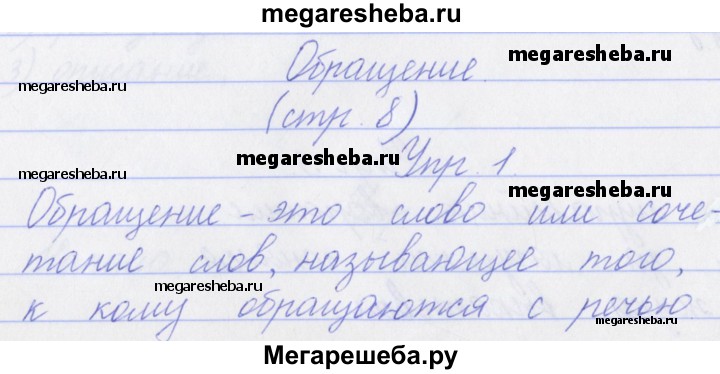 megaresheba.ru
Обращение.
megaresheba.ru
megaresheba.ru
(стр. 8)
megaresheba.ru
Упр. 1.
Обращение – это слово или соче-
тание слов, называющее того,
megaresheba.ru
к кому обращаются с речью.
megaresheba.ru
Мегарешеба.ру